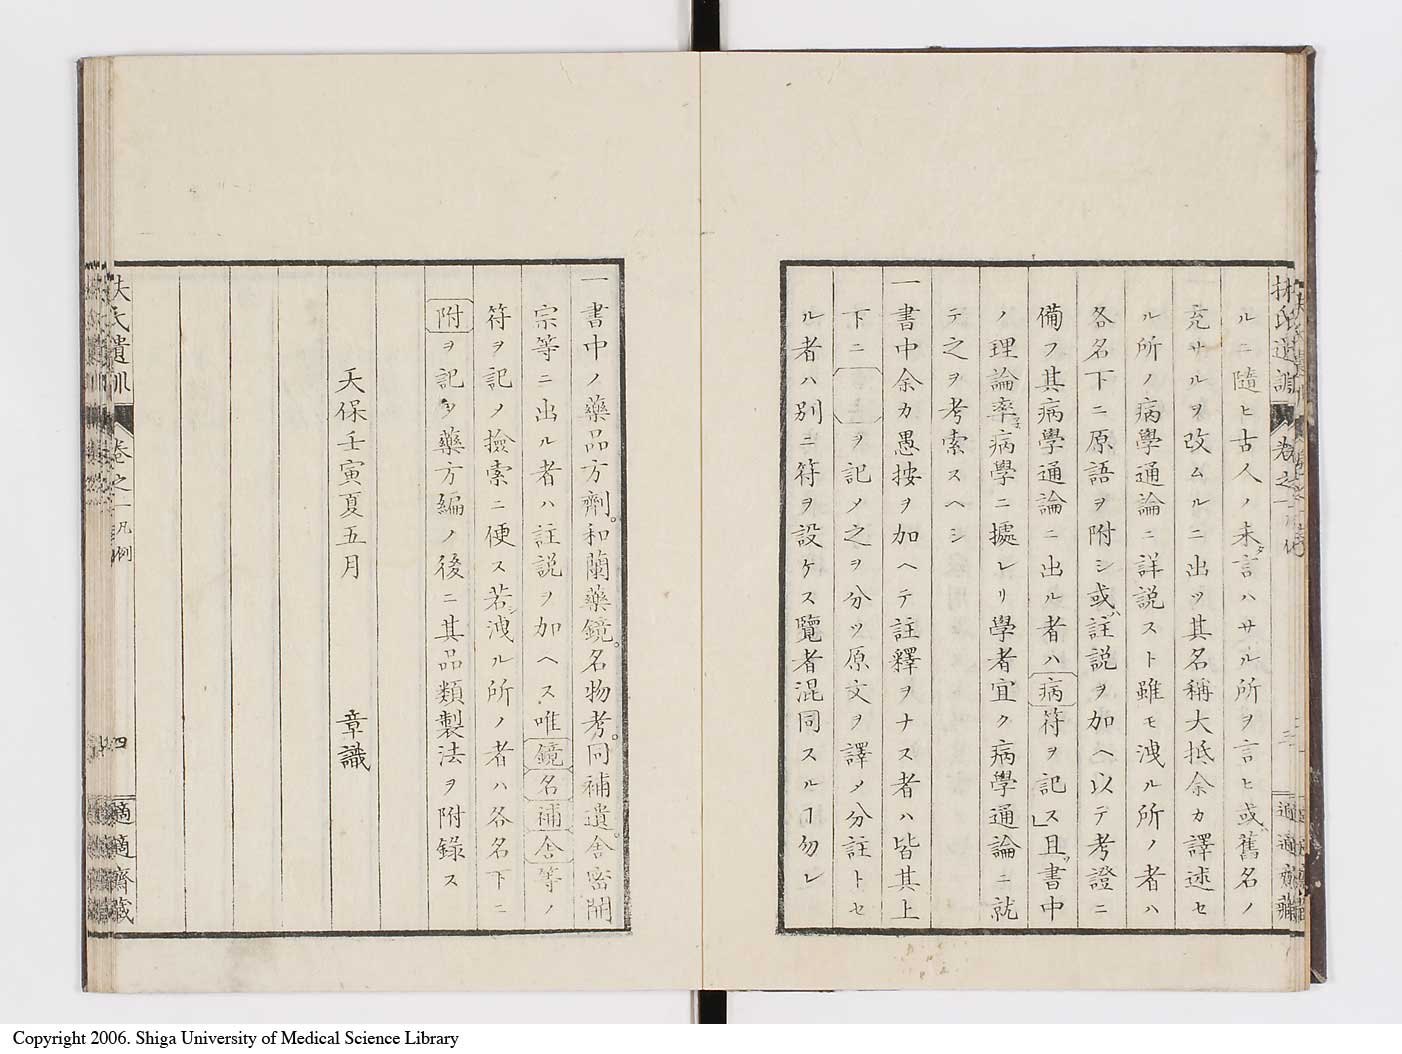 ルニ隨ヒ古人ノ未タ言ハサル所ヲ言ヒ或ハ舊名ノ
充サルヲ改ムルニ出ツ其名稱大抵余カ譯述セ
ル所ノ病學通論ニ詳説スト雖モ洩ル所ノ者ハ
各名下ニ原語ヲ附シ或ハ註説ヲ加ヘ以テ考證ニ
備フ其病學通論ニ出ル者ハ病符ヲ記ス」且ツ書中
ノ理論率子病學ニ據レリ學者宜ク病學通論ニ就
テ之ヲ考索スヘシ
一書中余カ愚按ヲ加ヘテ註釋ヲナス者ハ皆其上
下ニヲ記メ之ヲ分ツ原文ヲ譯メ分註トセ
ル者ハ別ニ符ヲ設ケス覽者混同スルヿ勿レ
一書中ノ藥品方劑。和蘭藥鏡。名物考。同補遺。舍密開
宗等ニ出ル者ハ註説ヲ加ヘス唯鏡名補舍等ノ
符ヲ記メ撿索ニ便ス若シ洩ル所ノ者ハ各名下ニ
附ヲ記メ藥方編ノ後ニ其品類製法ヲ附錄ス
天保壬寅夏五月
章識
扶氏遺訓 卷之一凡例 四 適適齋藏
Copyright 2006. Shiga University of Medical Science Library